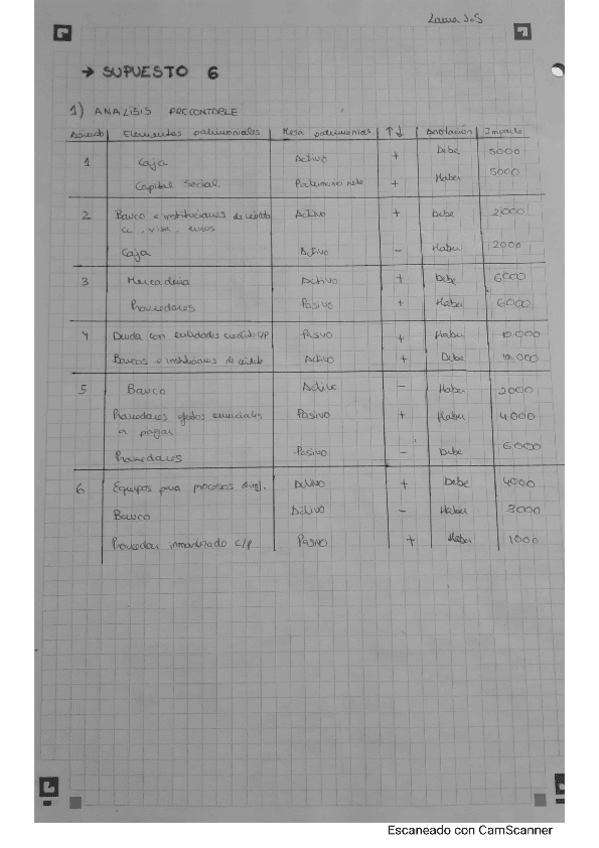 Laura J.S
→ SUPUESTO 6
1) ANALISIS PRECONTABLE
Asiento Elementos patrimoniales Masa patrimonial ↑↓ Anotación Importe
1 Caja Activo + Debe 5000
Capital Social Patrimonio neto + Haber 5000
2 Banco e instituciones de crédito Activo + Debe 2000
cc, vista, euros
Caja Activo - Haber 2000
3 Mercaderia Activo + Debe 6000
Proveedores Pasivo + Haber 6000
4 Deuda con entidades credito C/P Pasivo + Haber 10.000
Bancos e instituciones de crédito Activo + Debe 10.000
5 Banco Activo - Haber 2000
Proveedores efectos comerciales Pasivo + Haber 4000
a pagar
Proveedores Pasivo - Debe 6000
6 Equipos para procesos Activo + Debe 4000
Banco Activo - Haber 3000
Proveedor inmovilizado C/P Pasivo + Haber 1000
Escaneado con CamScanner